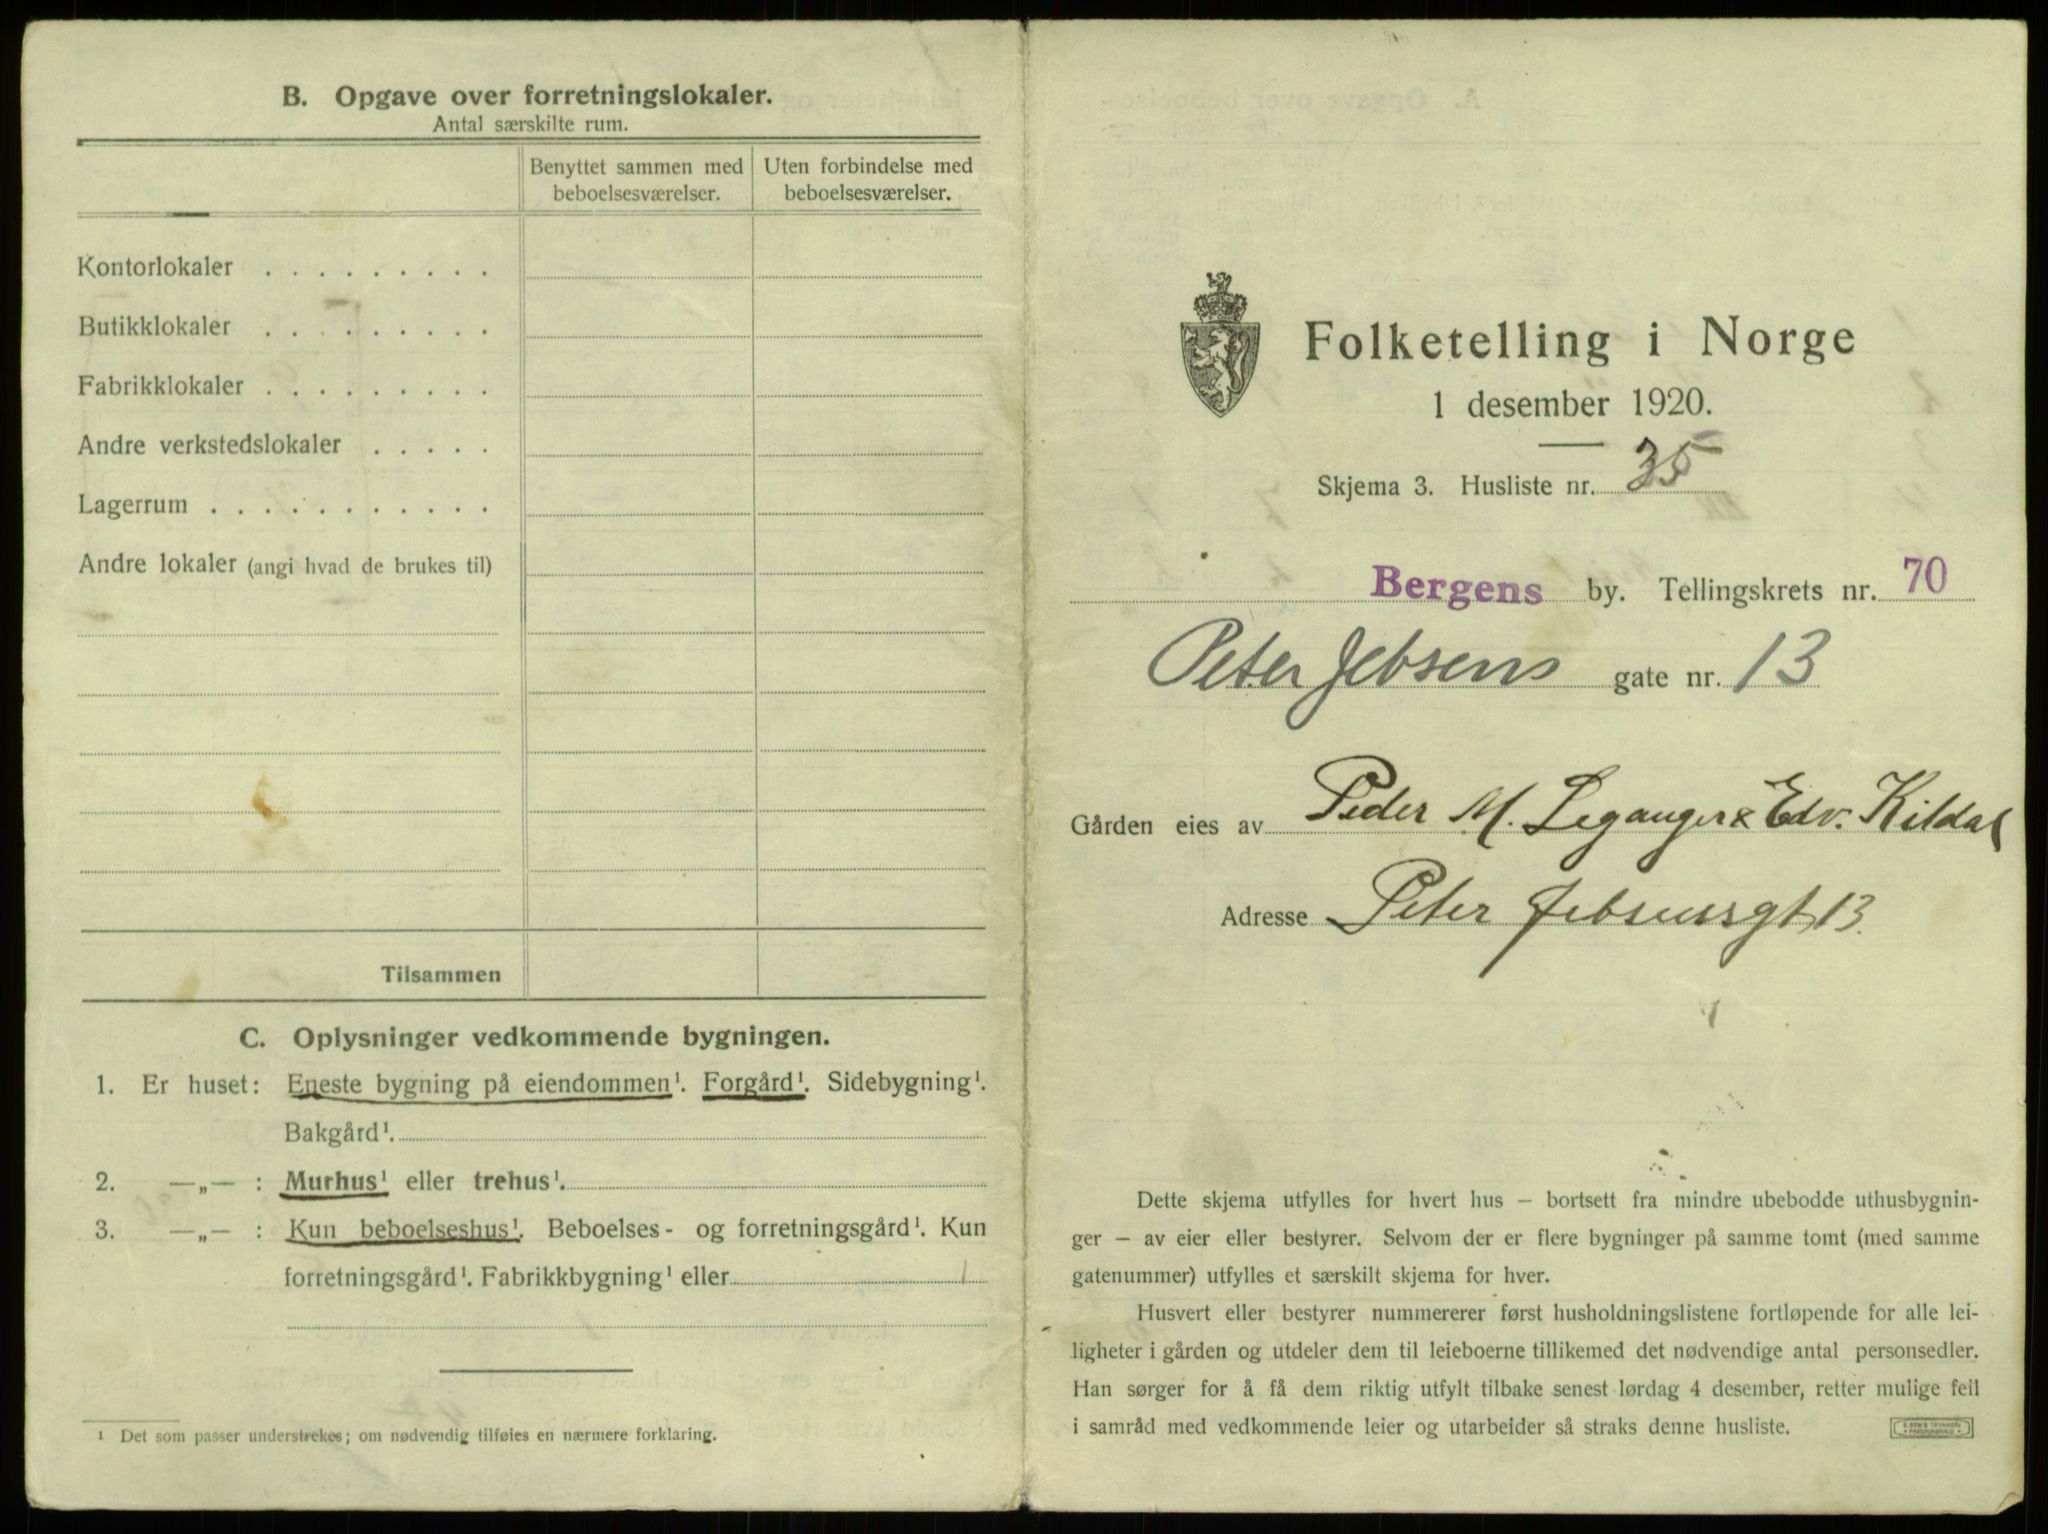 B. Opgave over forretningslokaler.
Antal særskilte rum.
Benyttet sammen med beboelsesværelser.
Uten forbindelse med beboelsesværelser.
Kontorlokaler . . . . . . . . .
Butikklokaler . . . . . . . . .
Fabrikklokaler . . . . . . . . .
Andre verkstedslokaler . . . . .
Lagerrum . . . . . . . . . . .
Andre lokaler (angi hvad de brukes til)
Tilsammen
C. Oplysninger vedkommende bygningen.
1. Er huset: Eneste bygning på eiendommen¹. Forgård¹. Sidebygning¹.
Bakgård¹.
2. —„— : Murhus¹ eller trehus¹.
3. —„— : Kun beboelseshus¹. Beboelses- og forretningsgård¹. Kun
forretningsgård¹. Fabrikkbygning¹ eller
¹ Det som passer understrekes; om nødvendig tilføies en nærmere forklaring.
Folketelling i Norge
1 desember 1920.
Skjema 3. Husliste nr. 35
Bergens by. Tellingskrets nr. 70
Peter Jebsens gate nr. 13
Gården eies av Peder M. Leganger & Edv. Kildal
Adresse Peter Jebsensgt 13.
Dette skjema utfylles for hvert hus – bortsett fra mindre ubebodde uthusbygnin-
ger – av eier eller bestyrer. Selvom der er flere bygninger på samme tomt (med samme
gatenummer) utfylles et særskilt skjema for hver.
Husvert eller bestyrer nummererer først husholdningslistene fortløpende for alle lei-
ligheter i gården og utdeler dem til leieboerne tillikemed det nødvendige antal personsedler.
Han sørger for å få dem riktig utfylt tilbake senest lørdag 4 desember, retter mulige feil
i samråd med vedkommende leier og utarbeider så straks denne husliste.